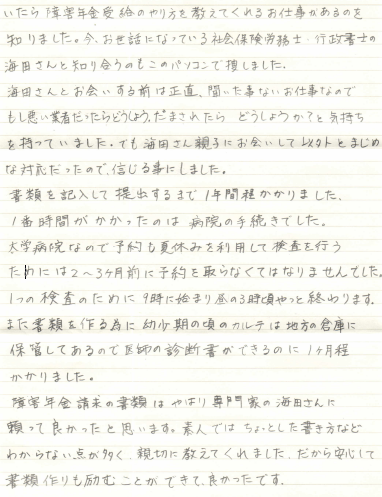 いたら障害年金受給のやり方を教えてくれるお仕事があるのを
知りました。今、お世話になっている社会保険労務士・行政書士の
海田さんと知り合うのもこのパソコンで捜しました。
海田さんとお会いする前は正直、聞いた事ないお仕事なので
もし悪い業者だったらどうしよう。だまされたら どうしようか?と気持ち
を持っていました。でも海田さん親子にお会いして とまじめ
な対応だったので、信じる事にしました。
書類を記入して提出するまで1年間程かかりました。
1番時間がかかったのは 病院の手続きでした。
大学病院なので予約も夏休みを利用して検査を行う
ためには2〜3ヶ月前に予約を取らなくてはなりませんでした。
1つの検査のために9時に始まり昼の3時頃やっと終わります。
また書類を作る為に幼少期の頃のカルテは地方の倉庫に
保管してあるので医師の診断書ができるのに1ヶ月程
かかりました。
障害年金請求の書類は やはり専門家の海田さんに
頼って良かったと思います。素人では ちょっとした書き方など
わからない点が多く、親切に教えてくれました。だから安心して
書類作りも励むことができて、良かったです。